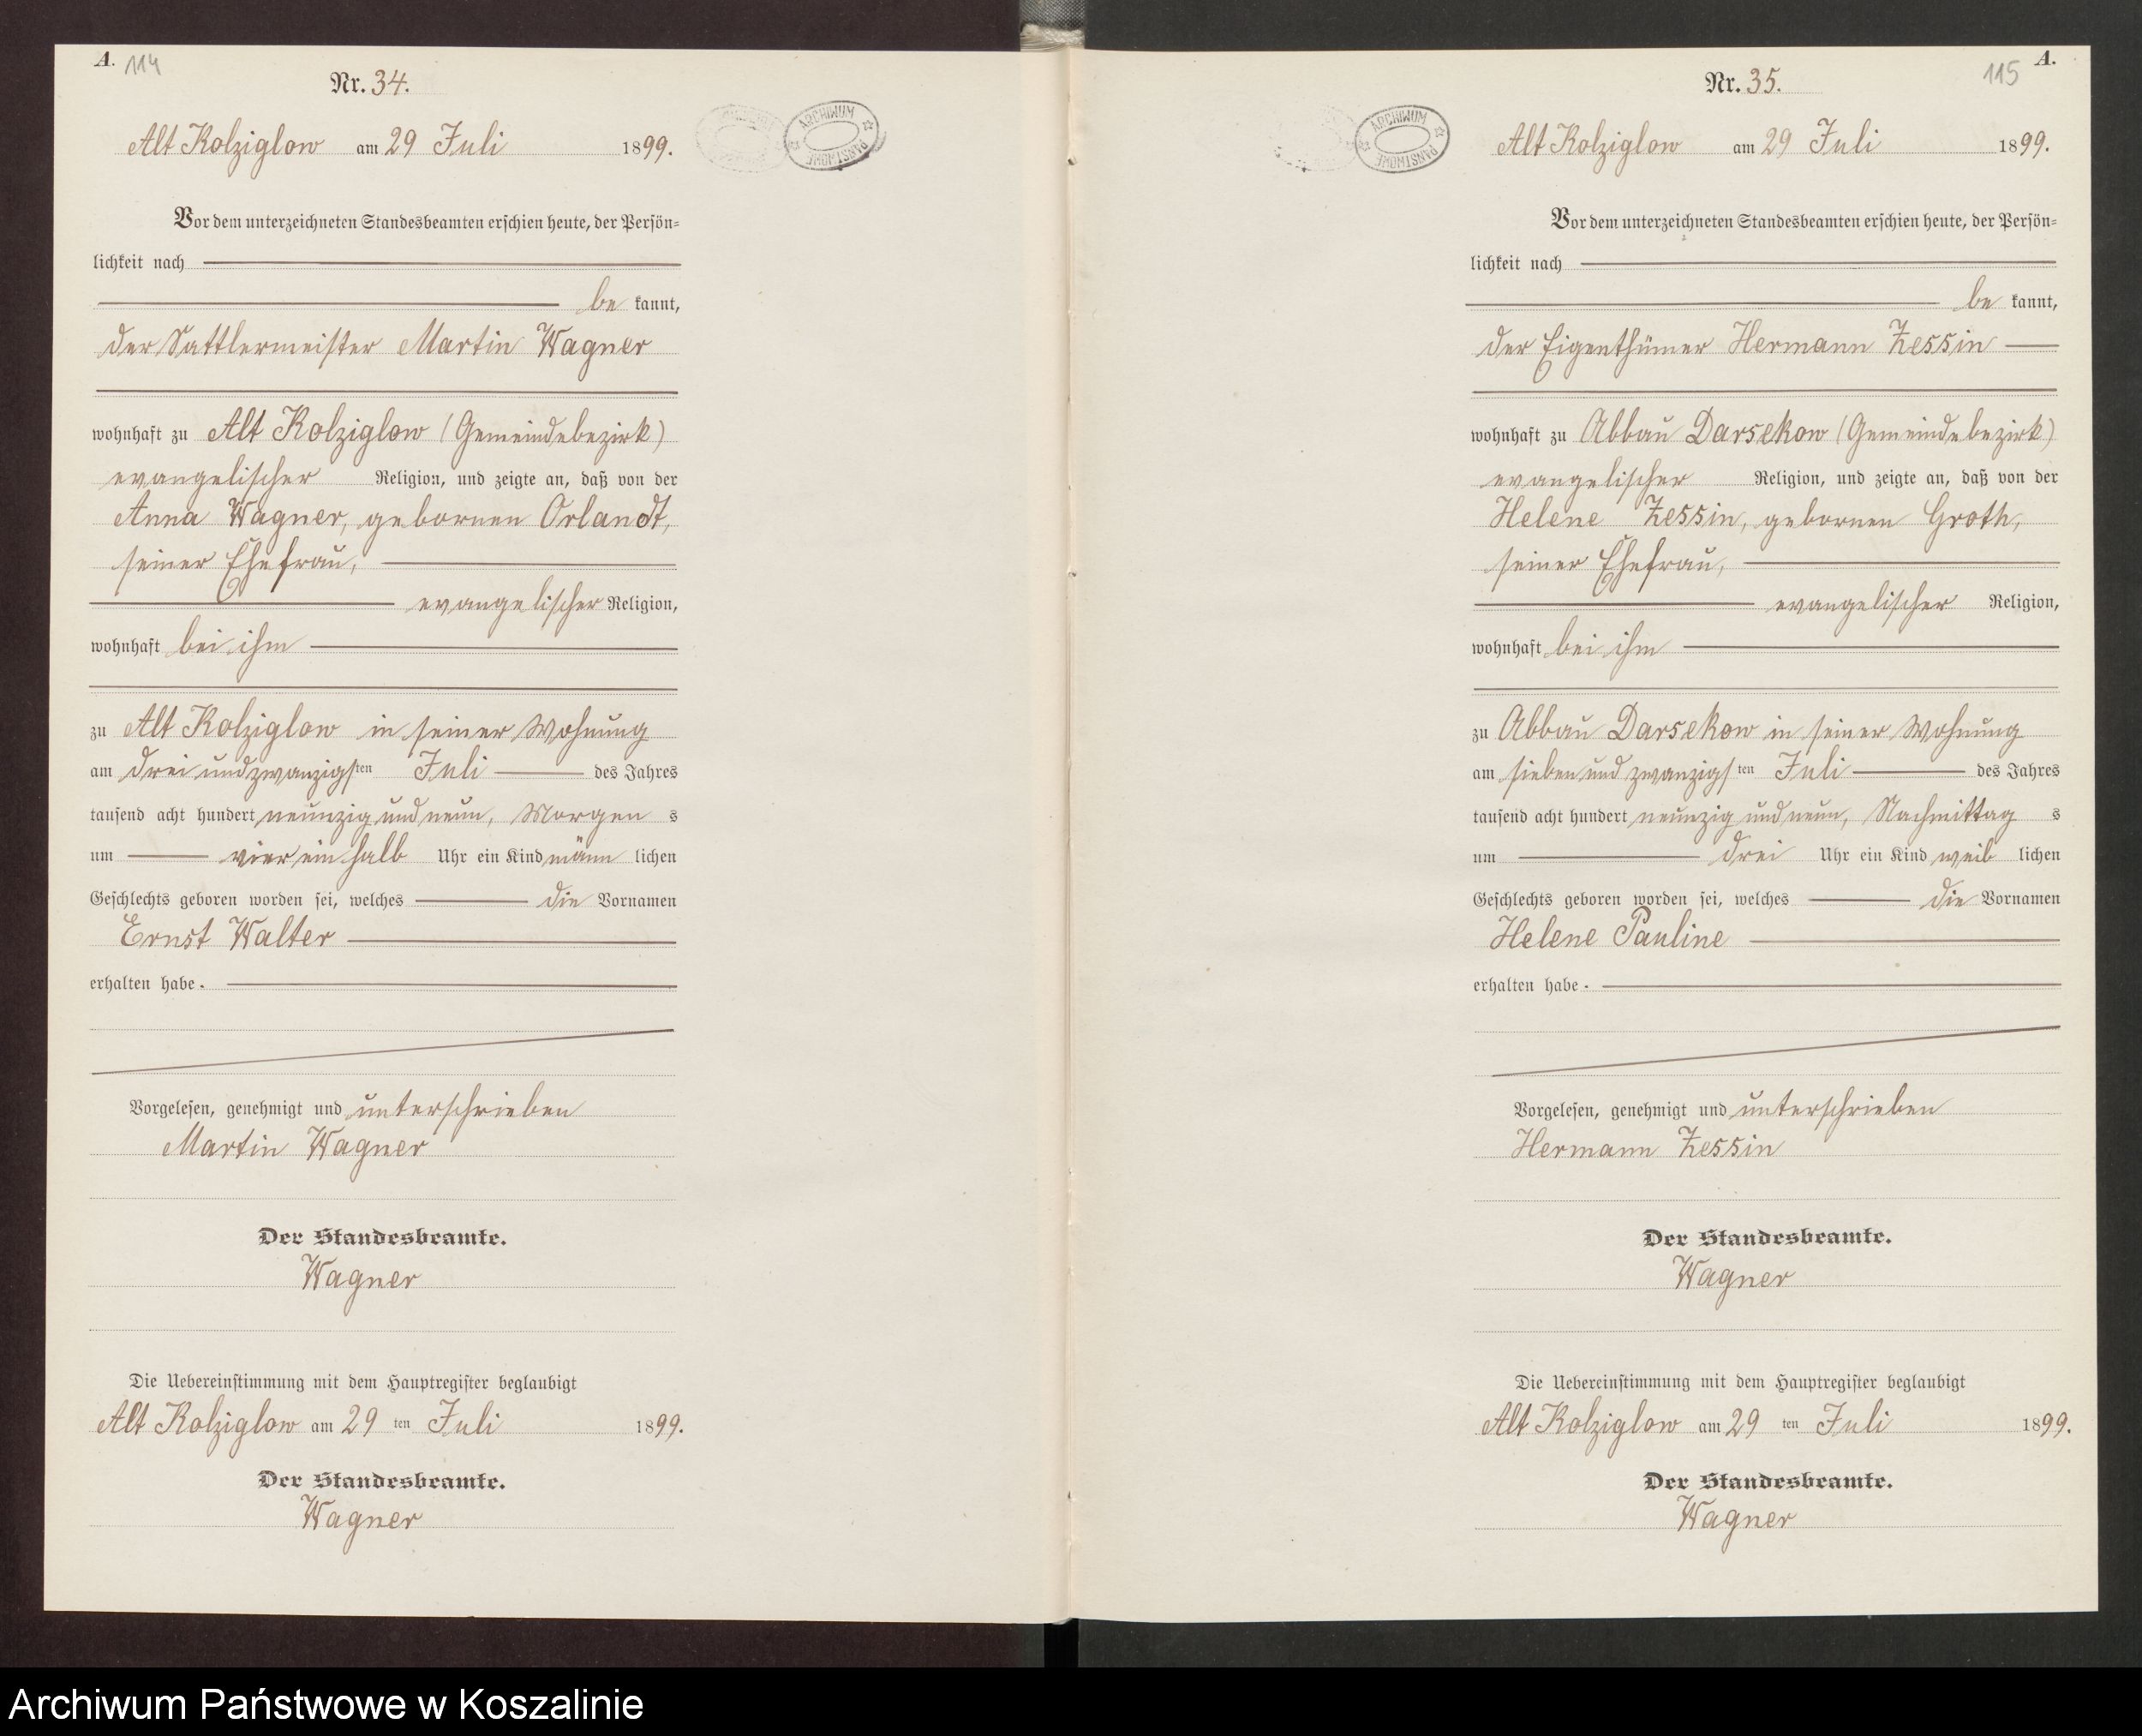 A. 114
Nr. 34.
Alt Kolziglow am 29 Juli 1899.
ARCHIWUM PAŃSTWOWE
Vor dem unterzeichneten Standesbeamten erschien heute, der Persön-
lichkeit nach
be kannt,
der Sattlermeister Martin Wagner
wohnhaft zu Alt Kolziglow (Gemeindebezirk)
evangelischer Religion, und zeigte an, daß von der
Anna Wagner, gebornen Orlandt,
seiner Ehefrau,
evangelischer Religion,
wohnhaft bei ihm
zu Alt Kolziglow in seiner Wohnung
am drei und zwanzigsten Juli des Jahres
tausend acht hundert neunzig und neun, Morgen s
um vier ein halb Uhr ein Kind männ lichen
Geschlechts geboren worden sei, welches die Vornamen
Ernst Walter
erhalten habe.
Vorgelesen, genehmigt und unterschrieben
Martin Wagner
Der Standesbeamte.
Wagner
Die Uebereinstimmung mit dem Hauptregister beglaubigt
Alt Kolziglow am 29 ten Juli 1899.
Der Standesbeamte.
Wagner
115 A.
Nr. 35.
ARCHIWUM PAŃSTWOWE
Alt Kolziglow am 29 Juli 1899.
Vor dem unterzeichneten Standesbeamten erschien heute, der Persön-
lichkeit nach
be kannt,
der Eigenthümer Hermann Zessin
wohnhaft zu Abbau Darsekow (Gemeindebezirk)
evangelischer Religion, und zeigte an, daß von der
Helene Zessin, gebornen Groth,
seiner Ehefrau,
evangelischer Religion,
wohnhaft bei ihm
zu Abbau Darsekow in seiner Wohnung
am sieben und zwanzigsten Juli des Jahres
tausend acht hundert neunzig und neun, Nachmittag s
um drei Uhr ein Kind weib lichen
Geschlechts geboren worden sei, welches die Vornamen
Helene Pauline
erhalten habe.
Vorgelesen, genehmigt und unterschrieben
Hermann Zessin
Der Standesbeamte.
Wagner
Die Uebereinstimmung mit dem Hauptregister beglaubigt
Alt Kolziglow am 29 ten Juli 1899.
Der Standesbeamte.
Wagner
Archiwum Państwowe w Koszalinie